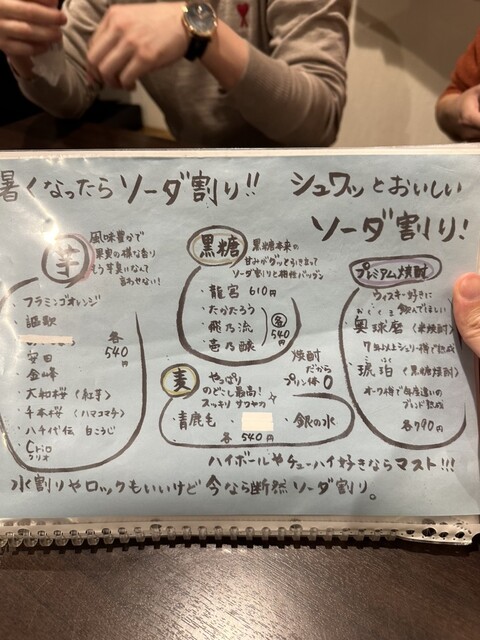 暑くなったらソーダ割り!!
シュワッとおいしい
ソーダ割り!
芋
風味豊かで
果実の様な香り
もう芋臭いなんて
言わせない!
・フラミンゴオレンジ
・謳歌
・安田
・金峰
・大和桜(紅芋)
・千本桜(ハマコマチ)
・八千代伝 白こうじ
・Crio
クリオ
各
540
円
黒糖
黒糖本来の
甘みがグッとひき立って
ソーダ割りと相性バツグン
・龍宮 610円
・たかたろう
・飛乃流
・壱乃醸
各
540
円
麦
やっぱり
のどごし最高!
スッキリ サワヤカ
焼酎
だから
プリン体0
・青鹿毛
・銀の水
各 540円
プレミアム焼酎
ウィスキー好きに
飲んでほしい
・奥球磨(米焼酎)
7年以上シェリー樽で熟成
こはく
・琥珀(黒糖焼酎)
オーク樽で年度違いの
ブレンド熟成
各790円
ハイボールやチューハイ好きならマスト!!!
水割りやロックもいいけど今なら断然ソーダ割り。